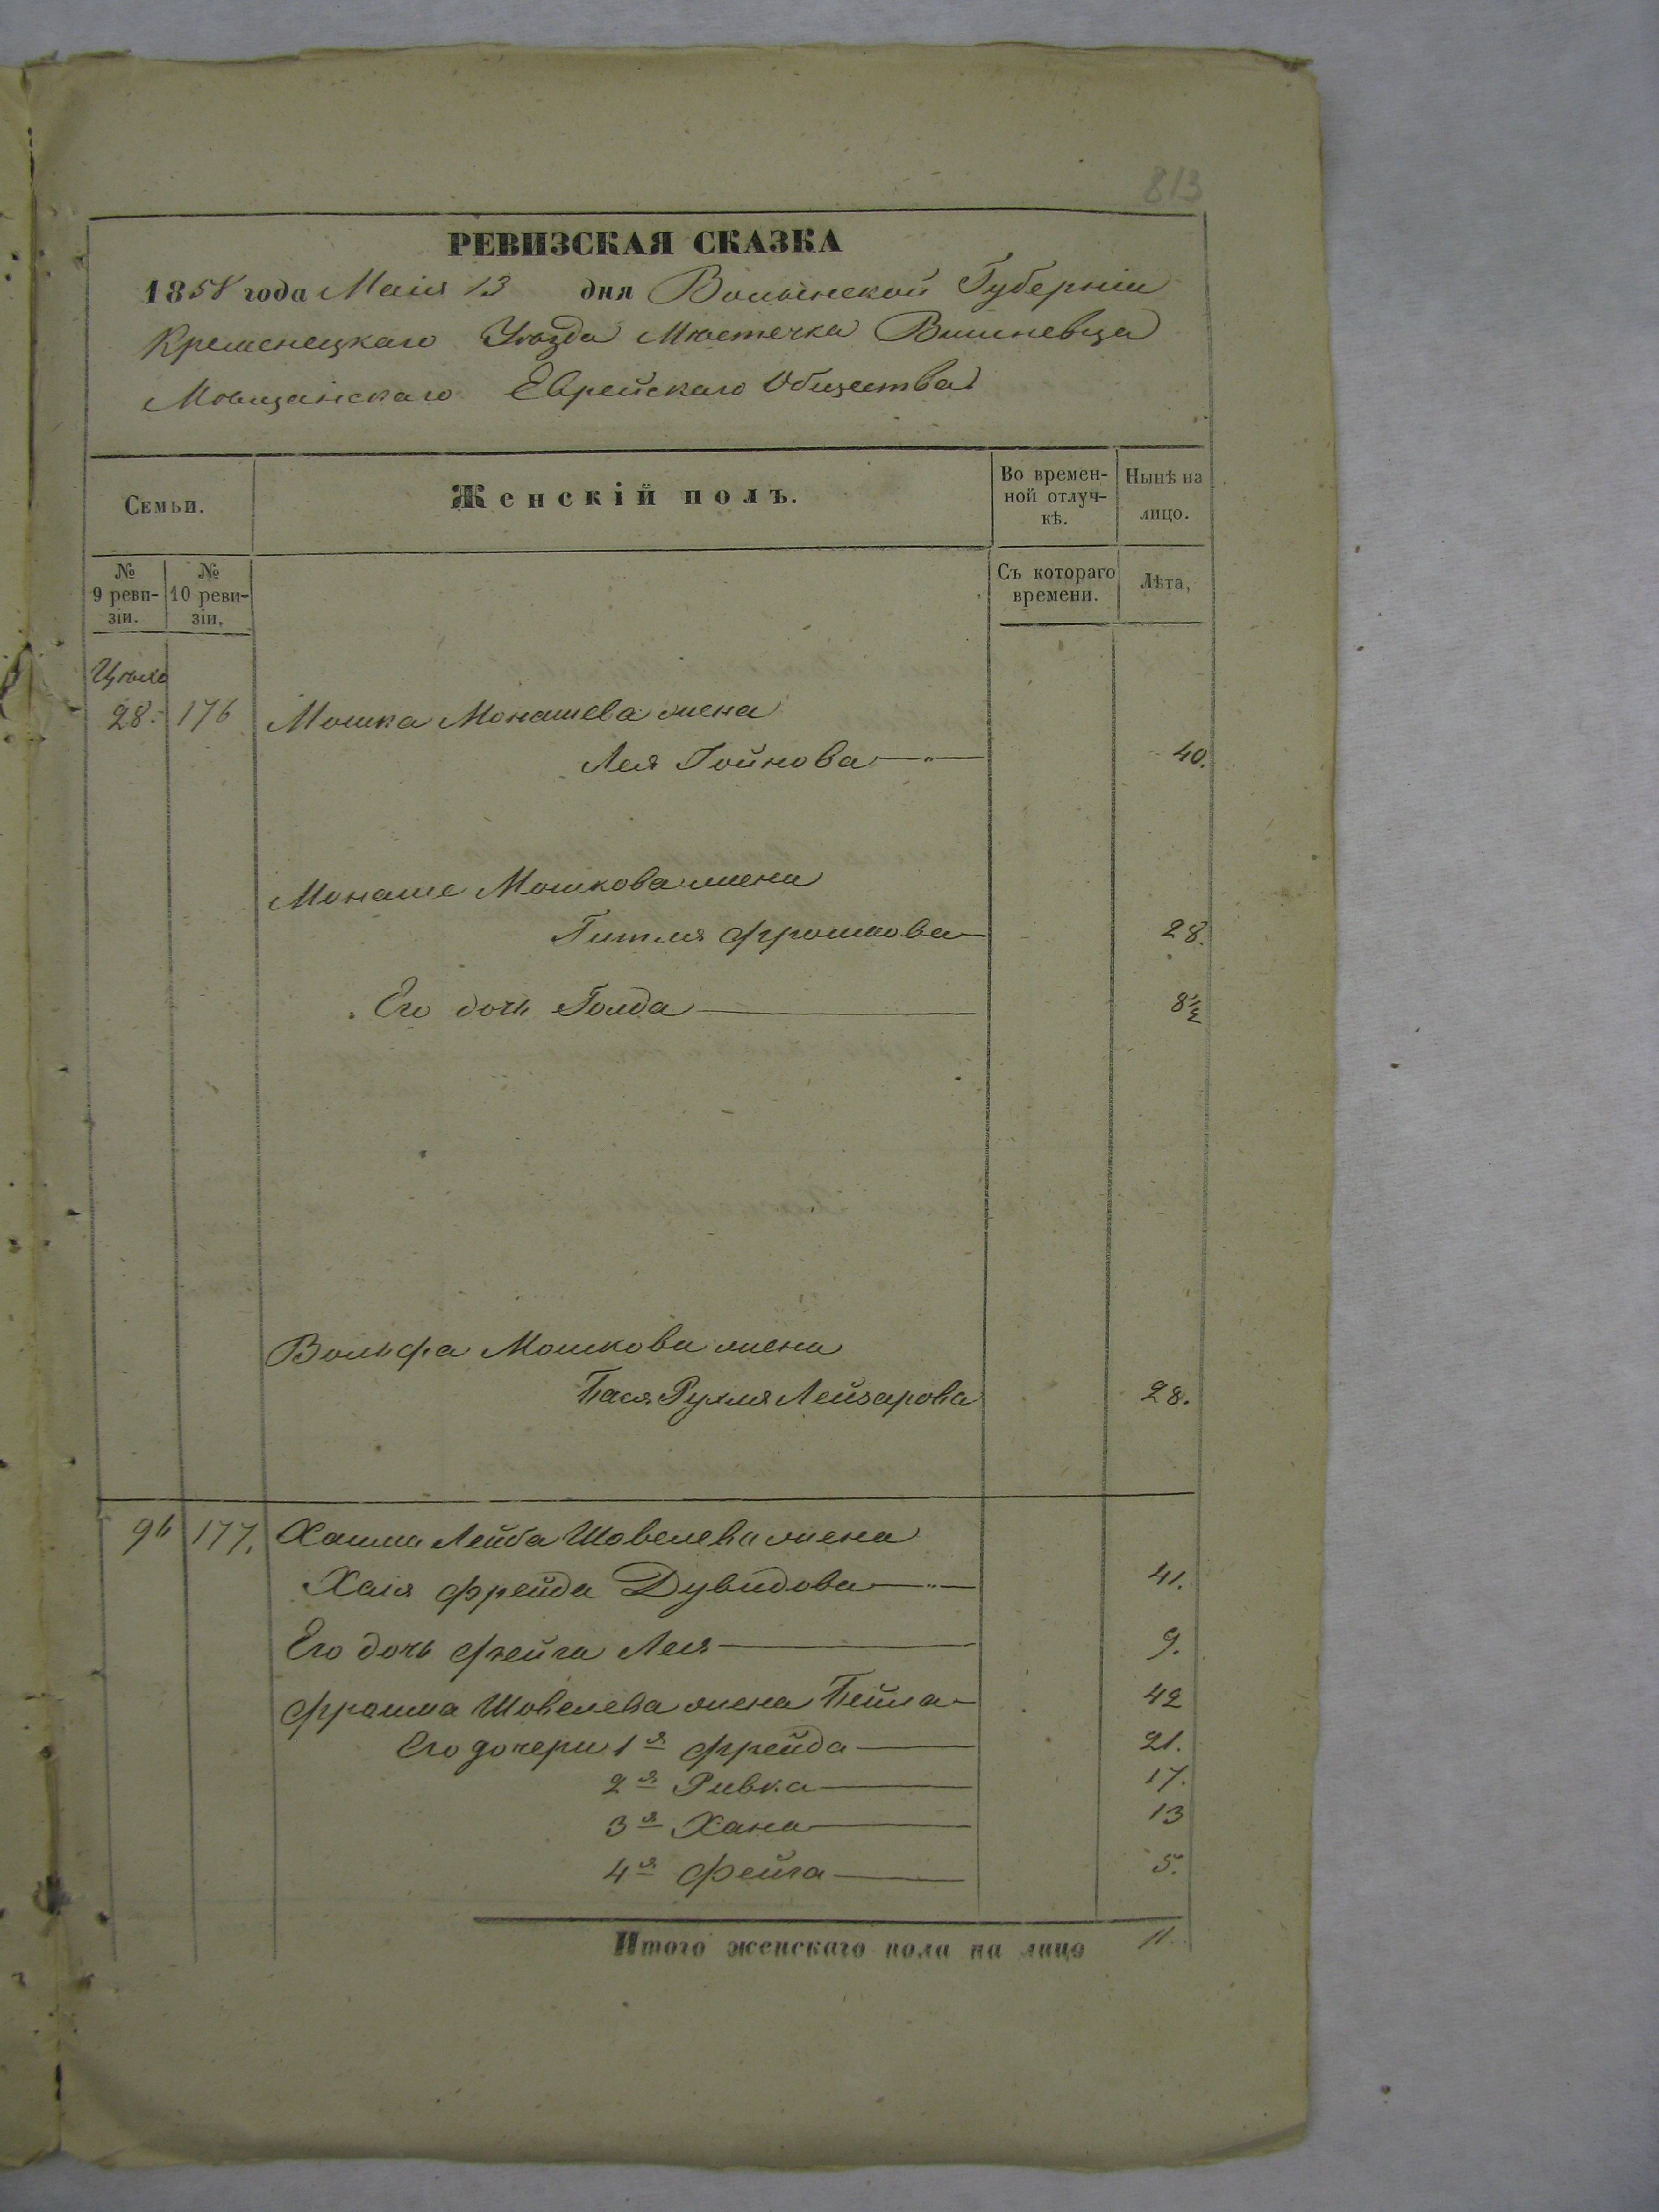 813
РЕВИЗСКАЯ СКАЗКА
1858 года Маія 13 дня Волынской Губерніи
Кременецкаго Уѣзда Мѣстечка Вишневца
Мѣщанскаго Еврейскаго Общества
Семьи.
Женскій полъ.
Во времен-
ной отлуч-
кѣ.
Нынѣ на
лицо.
№
9 реви-
зіи.
№
10 реви-
зіи.
Съ котораго
времени.
Лѣта,
28. 176 Мошка Монашева жена
Лея Гойнова 40.
Монаше Мошкова жена
Гитля Фроимова 28.
Его дочь Голда 8½
Вольфа Мошкова жена
Бася Рухля Лейзарова 28.
96 177. Хаима Лейба Шовелева жена
Хая Фрейда Дувидова 41.
Его дочь Фейга Лея 9.
Фроима Шовелева жена Бейла 42
Его дочери 1я Фрейда 21.
2я Ривка 17.
3я Хана 13
4я Фейга 5.
Итого женскаго пола на лицо 11.